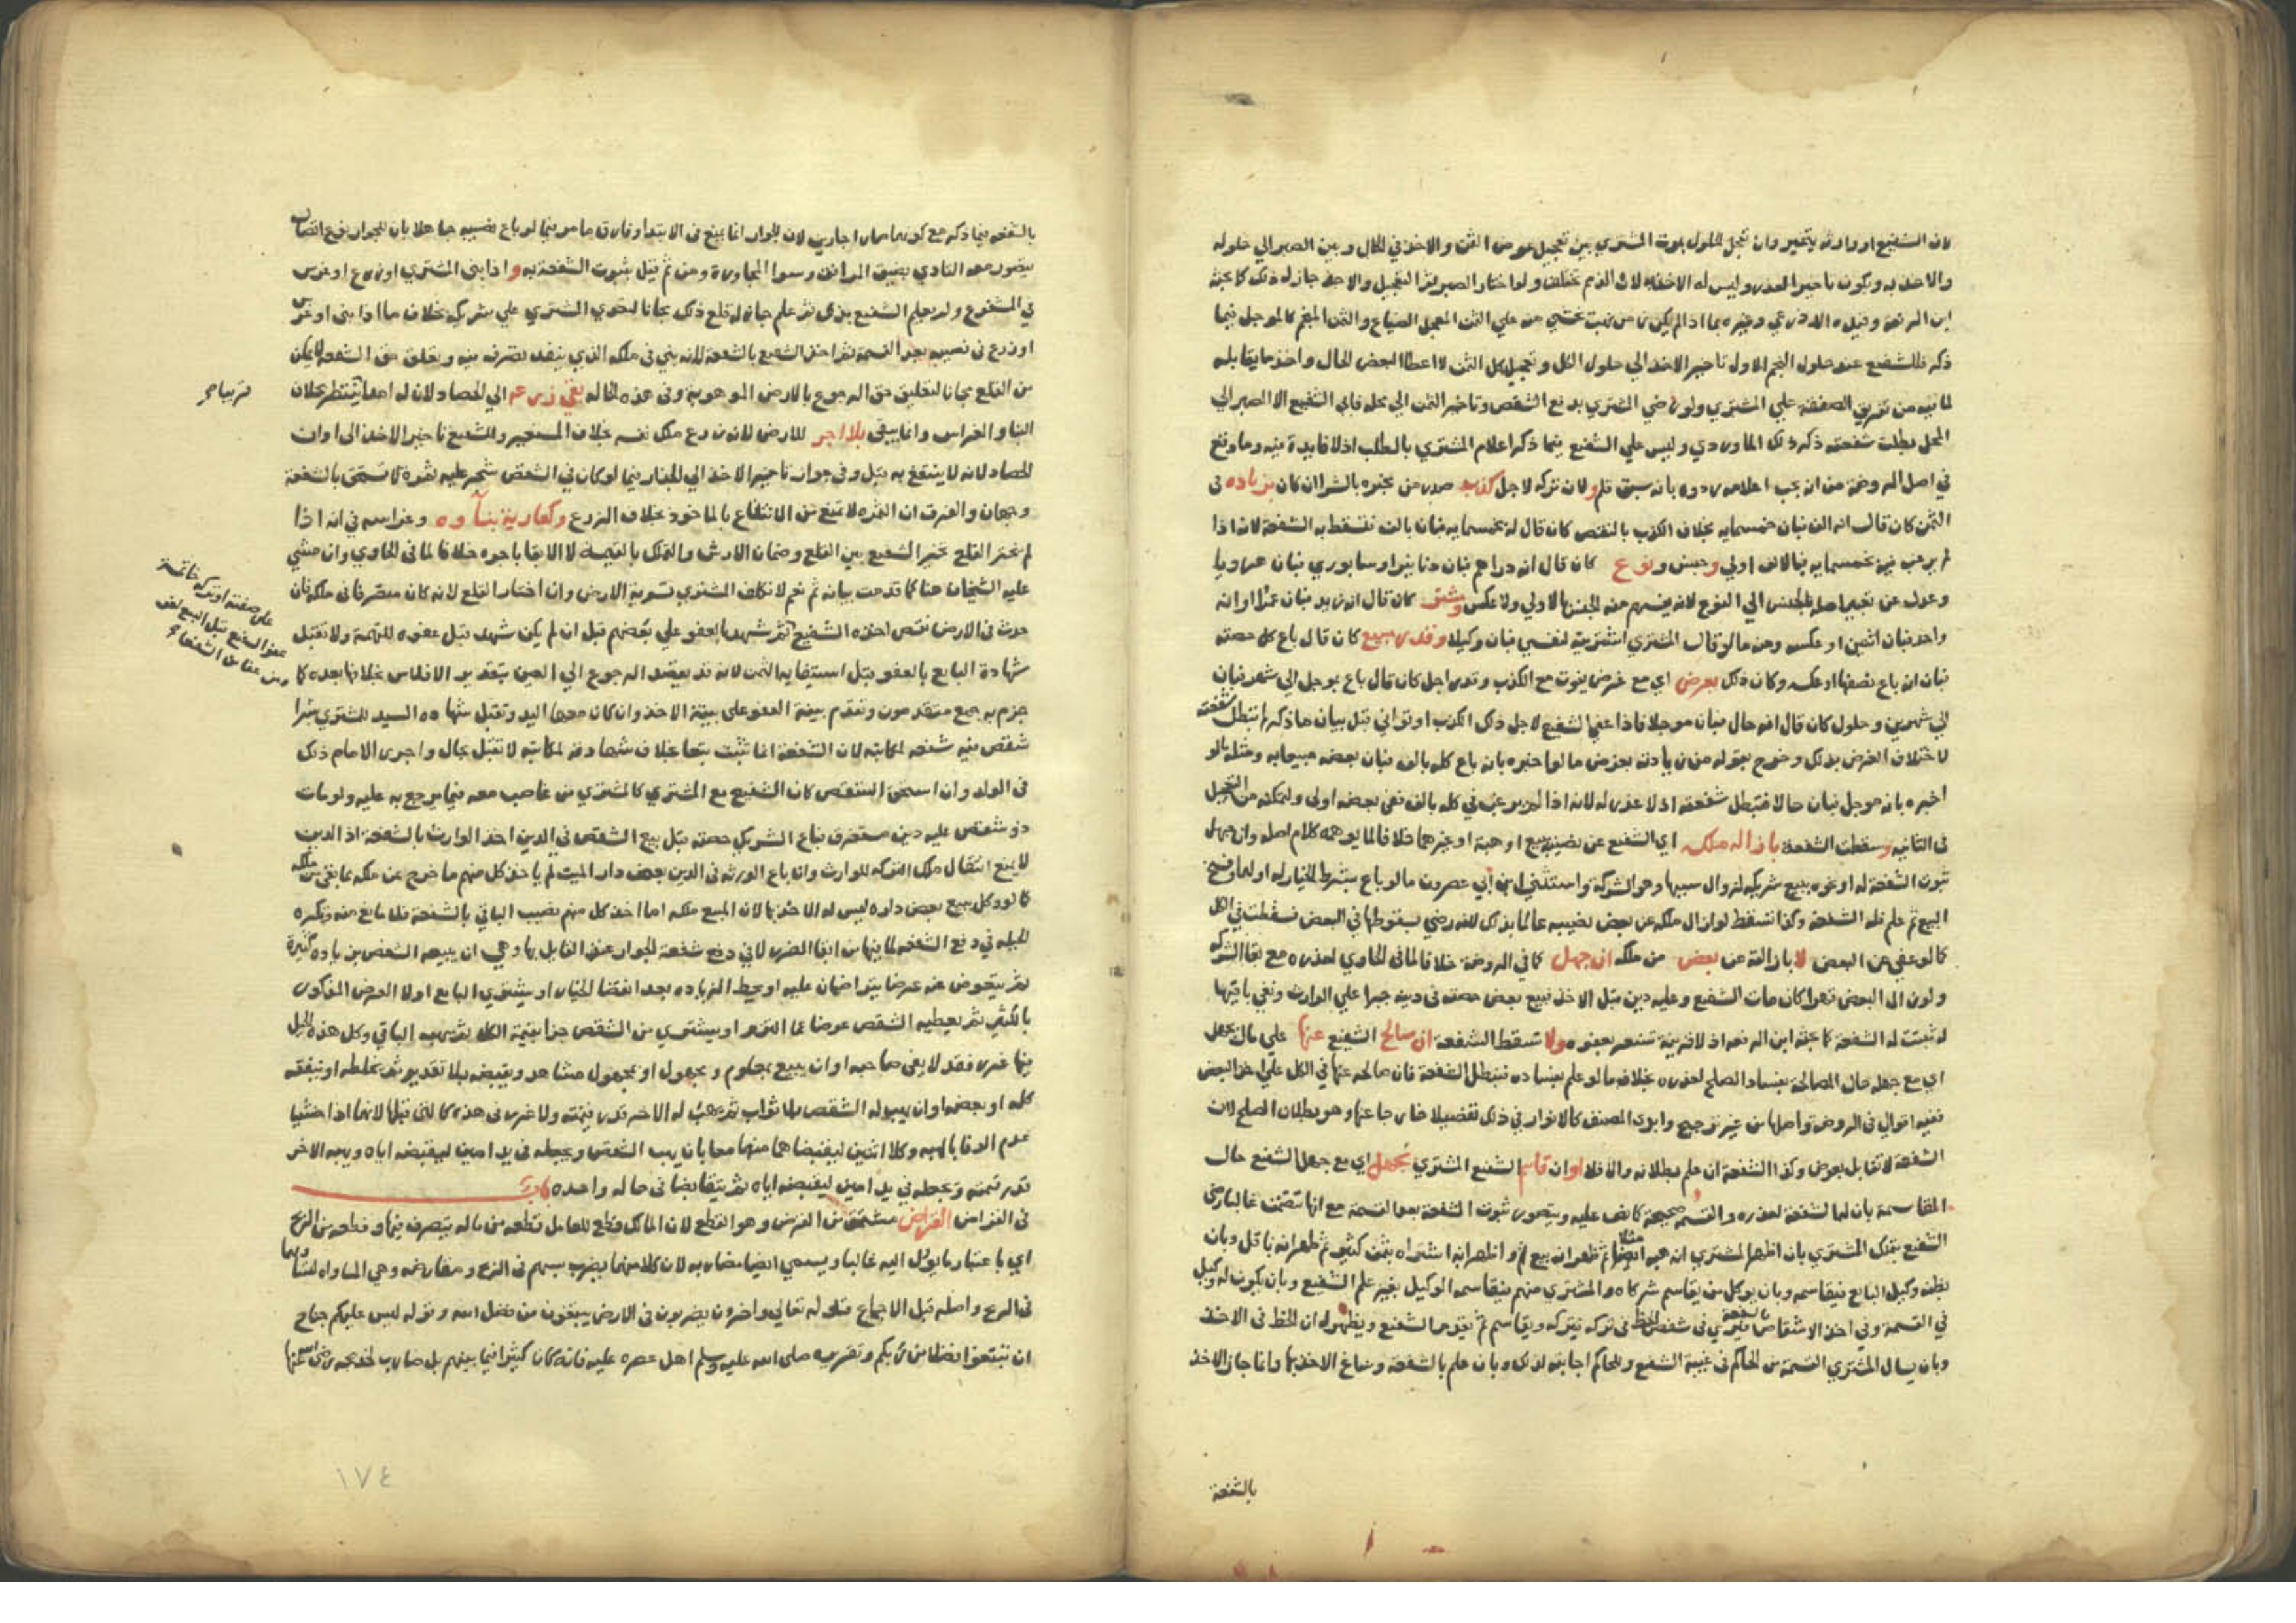 لان الشفيع او وارثه يتخير وان تحجل الحلول بموت المشتري بين تعجيل عوض الثمن والاخذ في الحال وبين الصبر الي حلوله
والاخذ به ويكون تاخير العذر وليس له الاخذ لان الذمم تختلف ولو اختار الصبر ثم التعجيل والاخذ جاز له ذلك كما بحثه
ذكر فللشفيع عند حلول النجم الاول تاخير الاخذ الي حلول الكل وتعجيل كل الثمن لا اعطا البعض الحال واخذ ما يقابله
لما فيه من تفريق الصفقة علي المشتري ولو رضي المشتري بدفع الشقص وتاخير الثمن الي محله فابي الشفيع الا الصبر الي
المحل بطلت شفعته ذكر ذلك الماوردي وليس علي الشفيع فيما ذكر اعلام المشتري بالطلب اذ لا فايدة فيه وما وقع
في اصل الروضة من انه يجب اعلامه ولان تركه لاجل كذب صدر من مخبره بالشرا ان كان بزياده في
الثمن كان قال انه الف فبان خمسمايه بخلاف الكذب بالنقص كان قال له بخمسمايه فبان بالف فتسقط به الشفعة لانه اذا
لم يرغب فيه بخمسمايه فبالالف اولي وجنس ونوع كان قال انه دراهم فبان دنانير او سابوري فبان هرويا
وعدل عن تعبير اصله بالجنس الي النوع لانه يفهم منه الجنس بالاولي ولا عكس ومشتر كان قال انه زيد فبان عمرا او انه
واحد فبان اثنين او عكسه ومنه ما لو قال المشتري اشتريته لنفسي فبان وكيلا وقدر مبيع كان قال باع كل حصته
فبان انه باع نصفها او عكسه وكان ذلك بعرض اي مع غرض يفوت مع الكذب وقدر اجل كان قال باع بموجل الي شهر فبان
الي شهرين وحلول كان قال انه حال فبان موجلا فاذا عفي الشفيع لاجل ذلك الكذب او تواني قبل بيان ما ذكر لم تبطل شفعته
لاختلاف الغرض بذلك وخرج بقوله من زيادته بعرض ما لو اخبره بانه باع كله بالف فبان بعضه مبيعا به ومثله ما لو
اخبره بانه موجل فبان حالا فتبطل شفعته اذ لا عذر له لانه اذا لم يرغب في كله بالف ففي بعضه اولي ولتمكنه من التعجيل
في الثانيه وسقطت الشفعة بازاله ملكه اي الشفيع عن نصيبه ببيع او هبة او غيرهما خلافا لما يوهمه كلام اصله وان جهل
ثبوت الشفعة له او نحوه ببيع شريكه لزوال سببها وهو الشركة واستثني ابن ابي عصرون ما لو باع بشرط الخيار له او لهما وفسخ
البيع ثم علم فله الشفعة وكذا تسقط لو ازال ملكه عن بعض نصيبه عالما بذلك لانه رضي بسقوطها في البعض فسقطت في الكل
كما لو عفي عن البعض لا بازالته عن بعض من ملكه ان جهل كما في الروضة خلافا لما في الحاوي لعذره مع بقا الشركة
ولو زال البعض قهرا كان مات الشفيع وعليه دين قبل الاخذ فبيع بعض حصته في دينه جبرا علي الوارث وبقي باقيها
له ثبتت له الشفعة كما بحثه ابن الرفعه اذ لا قرينة تشعر بعفوه ولا تسقط الشفعة ان صالح الشفيع عنها علي مال بجهل
اي مع جهله حال المصالحة بفساد الصلح لعذره بخلاف ما لو علم بفساده فتبطل الشفعة فان صالحه عنها في الكل علي اخذ البعض
ففيه اقوال في الروضة واصلها من غير ترجيح وابدي المصنف كالانوار في ذلك تفصيلا خارجا عنها وهو بطلان الصلح لان
الشفعة لا تقابل بعوض وكذا الشفعة ان علم بطلانه والا فلا او ان قاسم الشفيع المشتري بجهل اي مع جهل الشفيع حال
المقاسمة بان لها الشفعة لعذره والقسمة صحيحة كما نص عليه ويتصور ثبوت الشفعة بعد القسمة مع انها تتضمن غالبا رضي
الشفيع بتملك المشتري بان اظهر المشتري انه هبة ايضا مثلا ثم ظهر انه بيع او اظهر انه اشتراه بثمن كثير ثم ظهر انه باقل وبان
يظنه وكيل البايع فيقاسمه وبان يوكل من يقاسم شركاه والمشتري منهم فيقاسمه الوكيل بغير علم الشفيع وبان يكون له وكيل
في القسمة وفي اخذ الاشقاص بالشفعة فيري في شقص الحظ في تركه فيتركه ويقاسم ثم يقدم الشفيع ويظهر له ان الحظ في الاخذ
وبان يسال المشتري القسمة من الحاكم في غيبة الشفيع وللحاكم اجابته لذلك وبان علم بالشفعة وساغ الاخذ بها وانما جاز الاخذ
بالشفعة
بالشفعه فيما ذكر مع كونهما صارا جارين لان الجوار انما يمنع في الابتدا وفارق ما مر فيما لو باع نصيبه جاهلا بان الجوار نوع اتصال
يتصور معه التاذي بضيق المرافق وسوء المجاورة ومن ثم قيل بثبوت الشفعة به واذا بني المشتري او زرع او غرس
في المشفوع ولم يعلم الشفيع بذلك ثم علم جاز له قلع ذلك مجانا لتعدي المشتري علي شريكه بخلاف ما اذا بني او غرس
او زرع في نصيبه بعد القسمة ثم اخذ الشفيع بالشفعة لانه بني في ملكه الذي ينفذ تصرفه فيه وتعلق حق الشفعه لا يمكن
من القلع مجانا لتعلق حق الرجوع بالارض الموهوبة وفي هذه الحاله بقي زرعه الي الحصاد لان له امدا ينتظر بخلان
البنا والغراس وانما يبقي بلا اجر للارض لانه زرع ملك نفسه بخلاف المستعير وللشفيع تاخير الاخذ الي اوان
الحصاد لانه لا ينتفع به قبل وفي جواز تاخير الاخذ الي الجذاذ فيما لو كان في الشقص شجر عليه ثمره لا تستحق بالشفعة
وجهان والفرق ان الثمره لا تمنع من الانتفاع بالماخوذ بخلاف الزرع وكعارية بناؤه وغراسه في انه اذا
لم يختر القلع تخير الشفيع بين القلع وضمان الارش والتملك بالقيمة لا الابقا باجره خلافا لما في الحاوي وان مشي
عليه الشيخان هنا كما قدمت بيانه ثم نعم لا نكلف المشتري تسوية الارض وان اختار القلع لانه كان متصرفا في ملكه فان
حدث في الارض نقص اخذه الشفيع
علي صفته او تركه خاتمة
عفو الشفيع قبل البيع لغو
ثم شهد بالعفو علي بعضهم قبل ان لم يكن شهد قبل عفوه للتهمة ولا تقبل
شهادة البايع بالعفو قبل استيفايه الثمن لانه قد يقصد الرجوع الي العين بتقدير الافلاس بخلافها بعده كما
جزم به جمع متقدمون وتقدم بينة العفو علي بينة الاخذ وان كان معها اليد وتقبل شهاده السيد للمشتري بشرا
شقص فيه شفعه لمكاتبه لان الشفعة انما تثبت تبعا بخلاف شهادته لمكاتبه لا تقبل بحال واجري الامام ذلك
في الولد وان استحق الشقص كان الشفيع مع المشتري كالمشتري من غاصب معه فيما يرجع به عليه ولو مات
ذو شقص عليه دين مستغرق فباع الشريك حصته قبل بيع الشقص في الدين اخذ الوارث بالشفعة اذ الدين
لا يمنع انتقال ملك التركه للوارث وان باع الورثه في الدين بعض دار الميت لم ياخذ كل منهم ما خرج عن ملكه بما بقي من ملكه
كما لو وكل ببيع بعض داره ليس له الاخذ بها لان المبيع ملكه اما اخذ كل منهم نصيب الباقي بالشفعة فلا مانع منه وتكره
الحيله في دفع الشفعه لما فيها من ابقا الضرر لا في دفع شفعة الجوار عند القايل بها وهي ان يبيعه الشقص بزياده كثيرة
ثم يتعوض عنه عرضا يتراضيان عليه او يحط الزياده بعد انقضا الخيار او يشتري البايع اولا العرض المذكور
بالكثير ثم يعطيه الشقص عوضا عما التزمه او يشتري من الشقص جزا بقيمة الكل ثم يهبه الباقي وكل هذه الحيل
فيها غرر فقد لا يفي صاحبه او ان يبيع بمعلوم ومجهول او بمجهول مشاهد ويقبضه بلا تقدير ثم يخلطه او ينفقه
كله او بعضه او ان يهب له الشقص بلا ثواب ثم يهب له الاخر قدر قيمته ولا غرر في هذه كالتي قبلها لانهما اذا خشيا
عدم الوفا بالهبه وكلا اثنين ليقبضاهما منهما معا بان يهب الشقص ويجعله في يد امين ليقبضه اياه ويهبه الاخر
قدر قيمته ويجعله في يد امين ليقبضه اياه ثم يتقابضا في حاله واحده
في القراض القراض مشتق من القرض وهو القطع لان المالك قطع للعامل قطعه من ماله يتصرف فيها وقطعه من الربح
اي باعتبار ما يوول اليه غالبا ويسمي ايضا مضاربه لان كلا منهما يضرب بسهم في الربح ومقارضه وهي المساواه لتساويهما
في الربح واصله قبل الاجماع قوله تعالي واخرون يضربون في الارض يبتغون من فضل الله وقوله ليس عليكم جناح
ان تبتغوا فضلا من ربكم وتقريره صلي الله عليه وسلم اهل عصره عليه فانه كان كثيرا فيما بينهم بل ضارب لخديجه رضي الله عنها
١٧٤